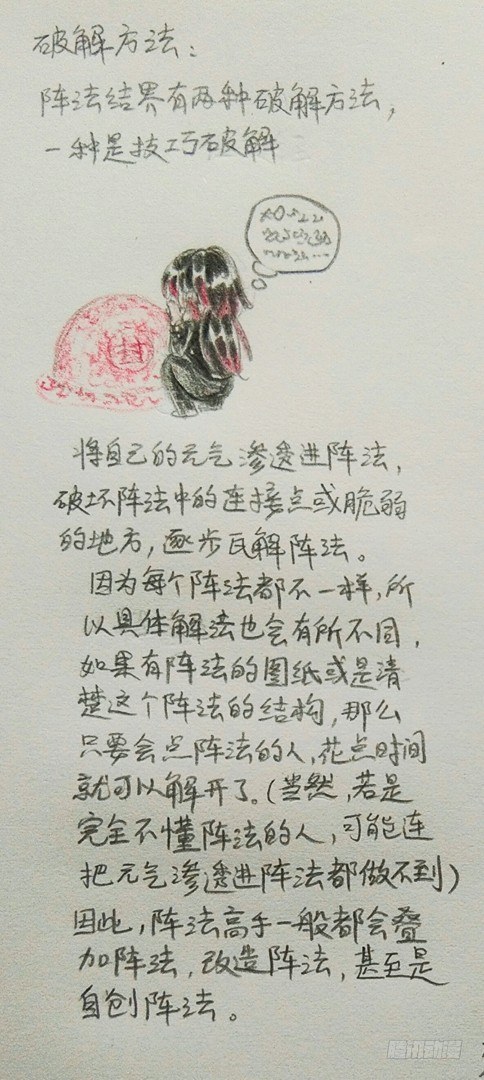 破解方法：
阵法结界有两种破解方法，
一种是技巧破解
封
将自己的元气渗透进阵法，
破坏阵法中的连接点或脆弱
的地方，逐步瓦解阵法。
因为每个阵法都不一样，所
以具体解法也会有所不同，
如果有阵法的图纸或是清
楚这个阵法的结构，那么
只要会点阵法的人，花点时间
就可以解开了。（当然，若是
完全不懂阵法的人，可能连
把元气渗透进阵法都做不到）
因此，阵法高手一般都会叠
加阵法，改造阵法，甚至是
自创阵法。
腾讯动漫